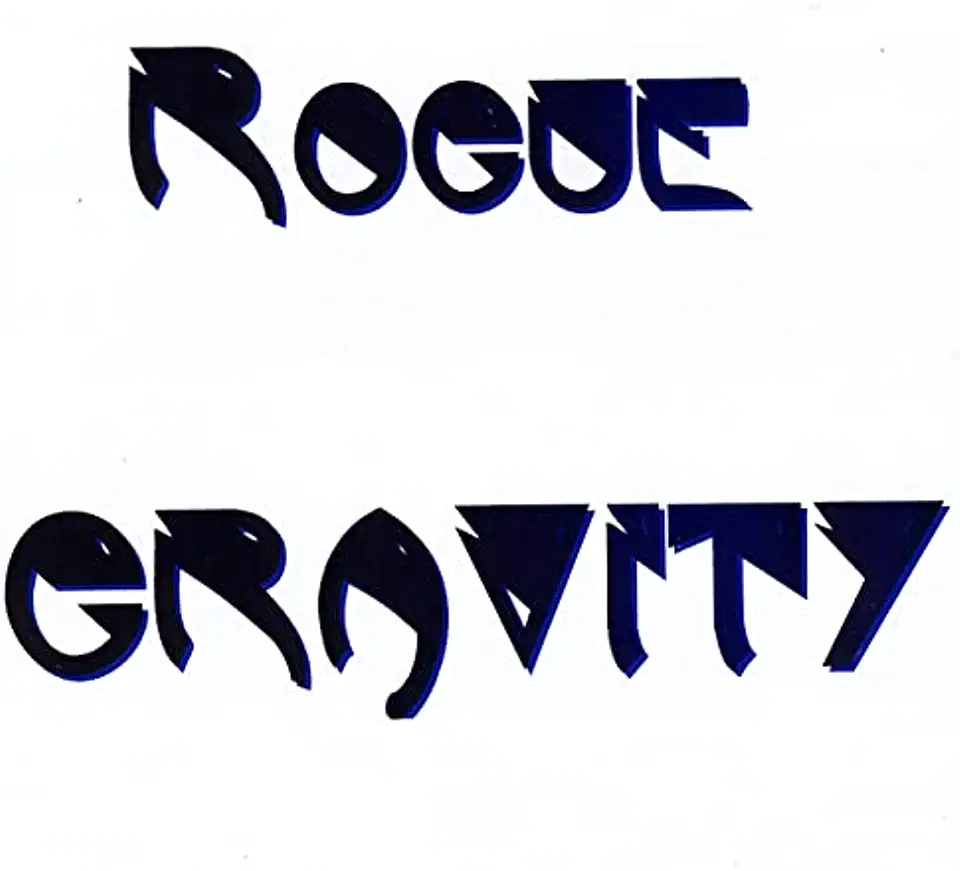 ROGUE
GRAVITY